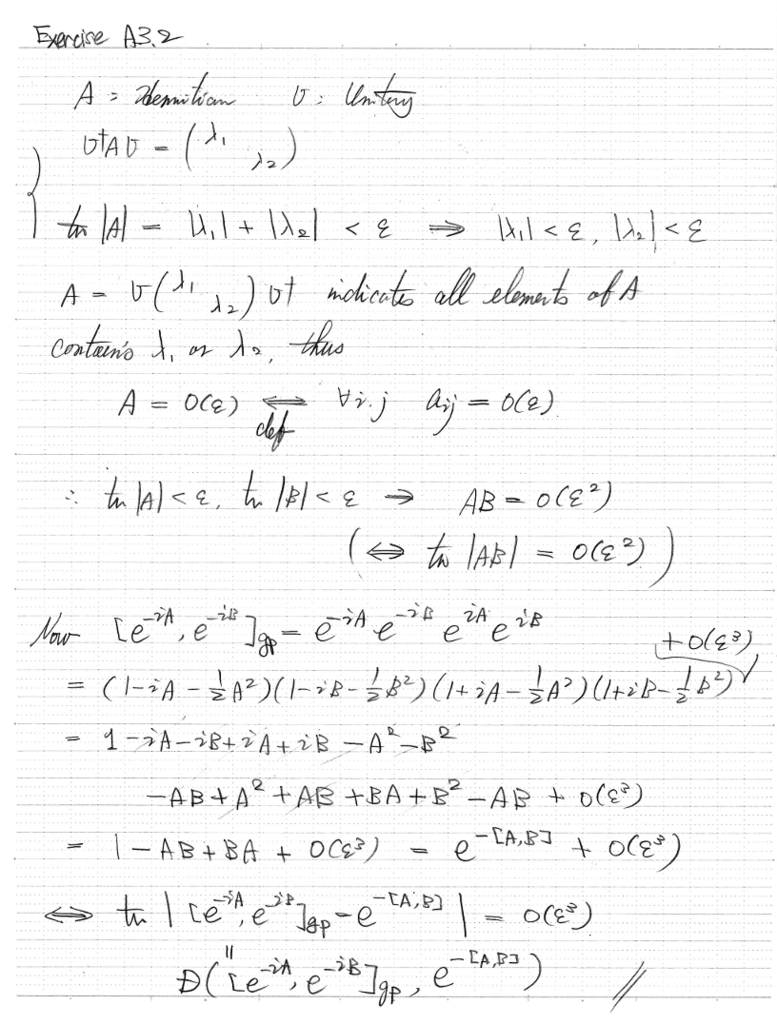 Exercise A3.2
A : Hermitian U : Unitary
U†AU = (λ₁ λ₂)
tr |A| = |λ₁| + |λ₂| < ε ⇒ |λ₁| < ε, |λ₂| < ε
A = U(λ₁ λ₂)U† indicates all elements of A
contains λ₁ or λ₂, thus
A = O(ε) ⟺ ∀i.j aij = O(ε)
def
∴ tr |A| < ε, tr |B| < ε → AB = O(ε²)
(⟺ tr |AB| = O(ε²))
Now [e^{-iA}, e^{-iB}]gp = e^{-iA} e^{-iB} e^{iA} e^{iB}
+O(ε³)
= (1-iA-½A²)(1-iB-½B²)(1+iA-½A²)(1+iB-½B²)
= 1-iA-iB+iA+iB-A²-B²
-AB+A²+AB+BA+B²-AB+O(ε³)
= 1-AB+BA+O(ε³) = e^{-[A,B]} + O(ε³)
⟺ tr |[e^{-iA}, e^{-iB}]gp - e^{-[A,B]}| = O(ε³)
"
D([e^{-iA}, e^{-iB}]gp, e^{-[A,B]}) //